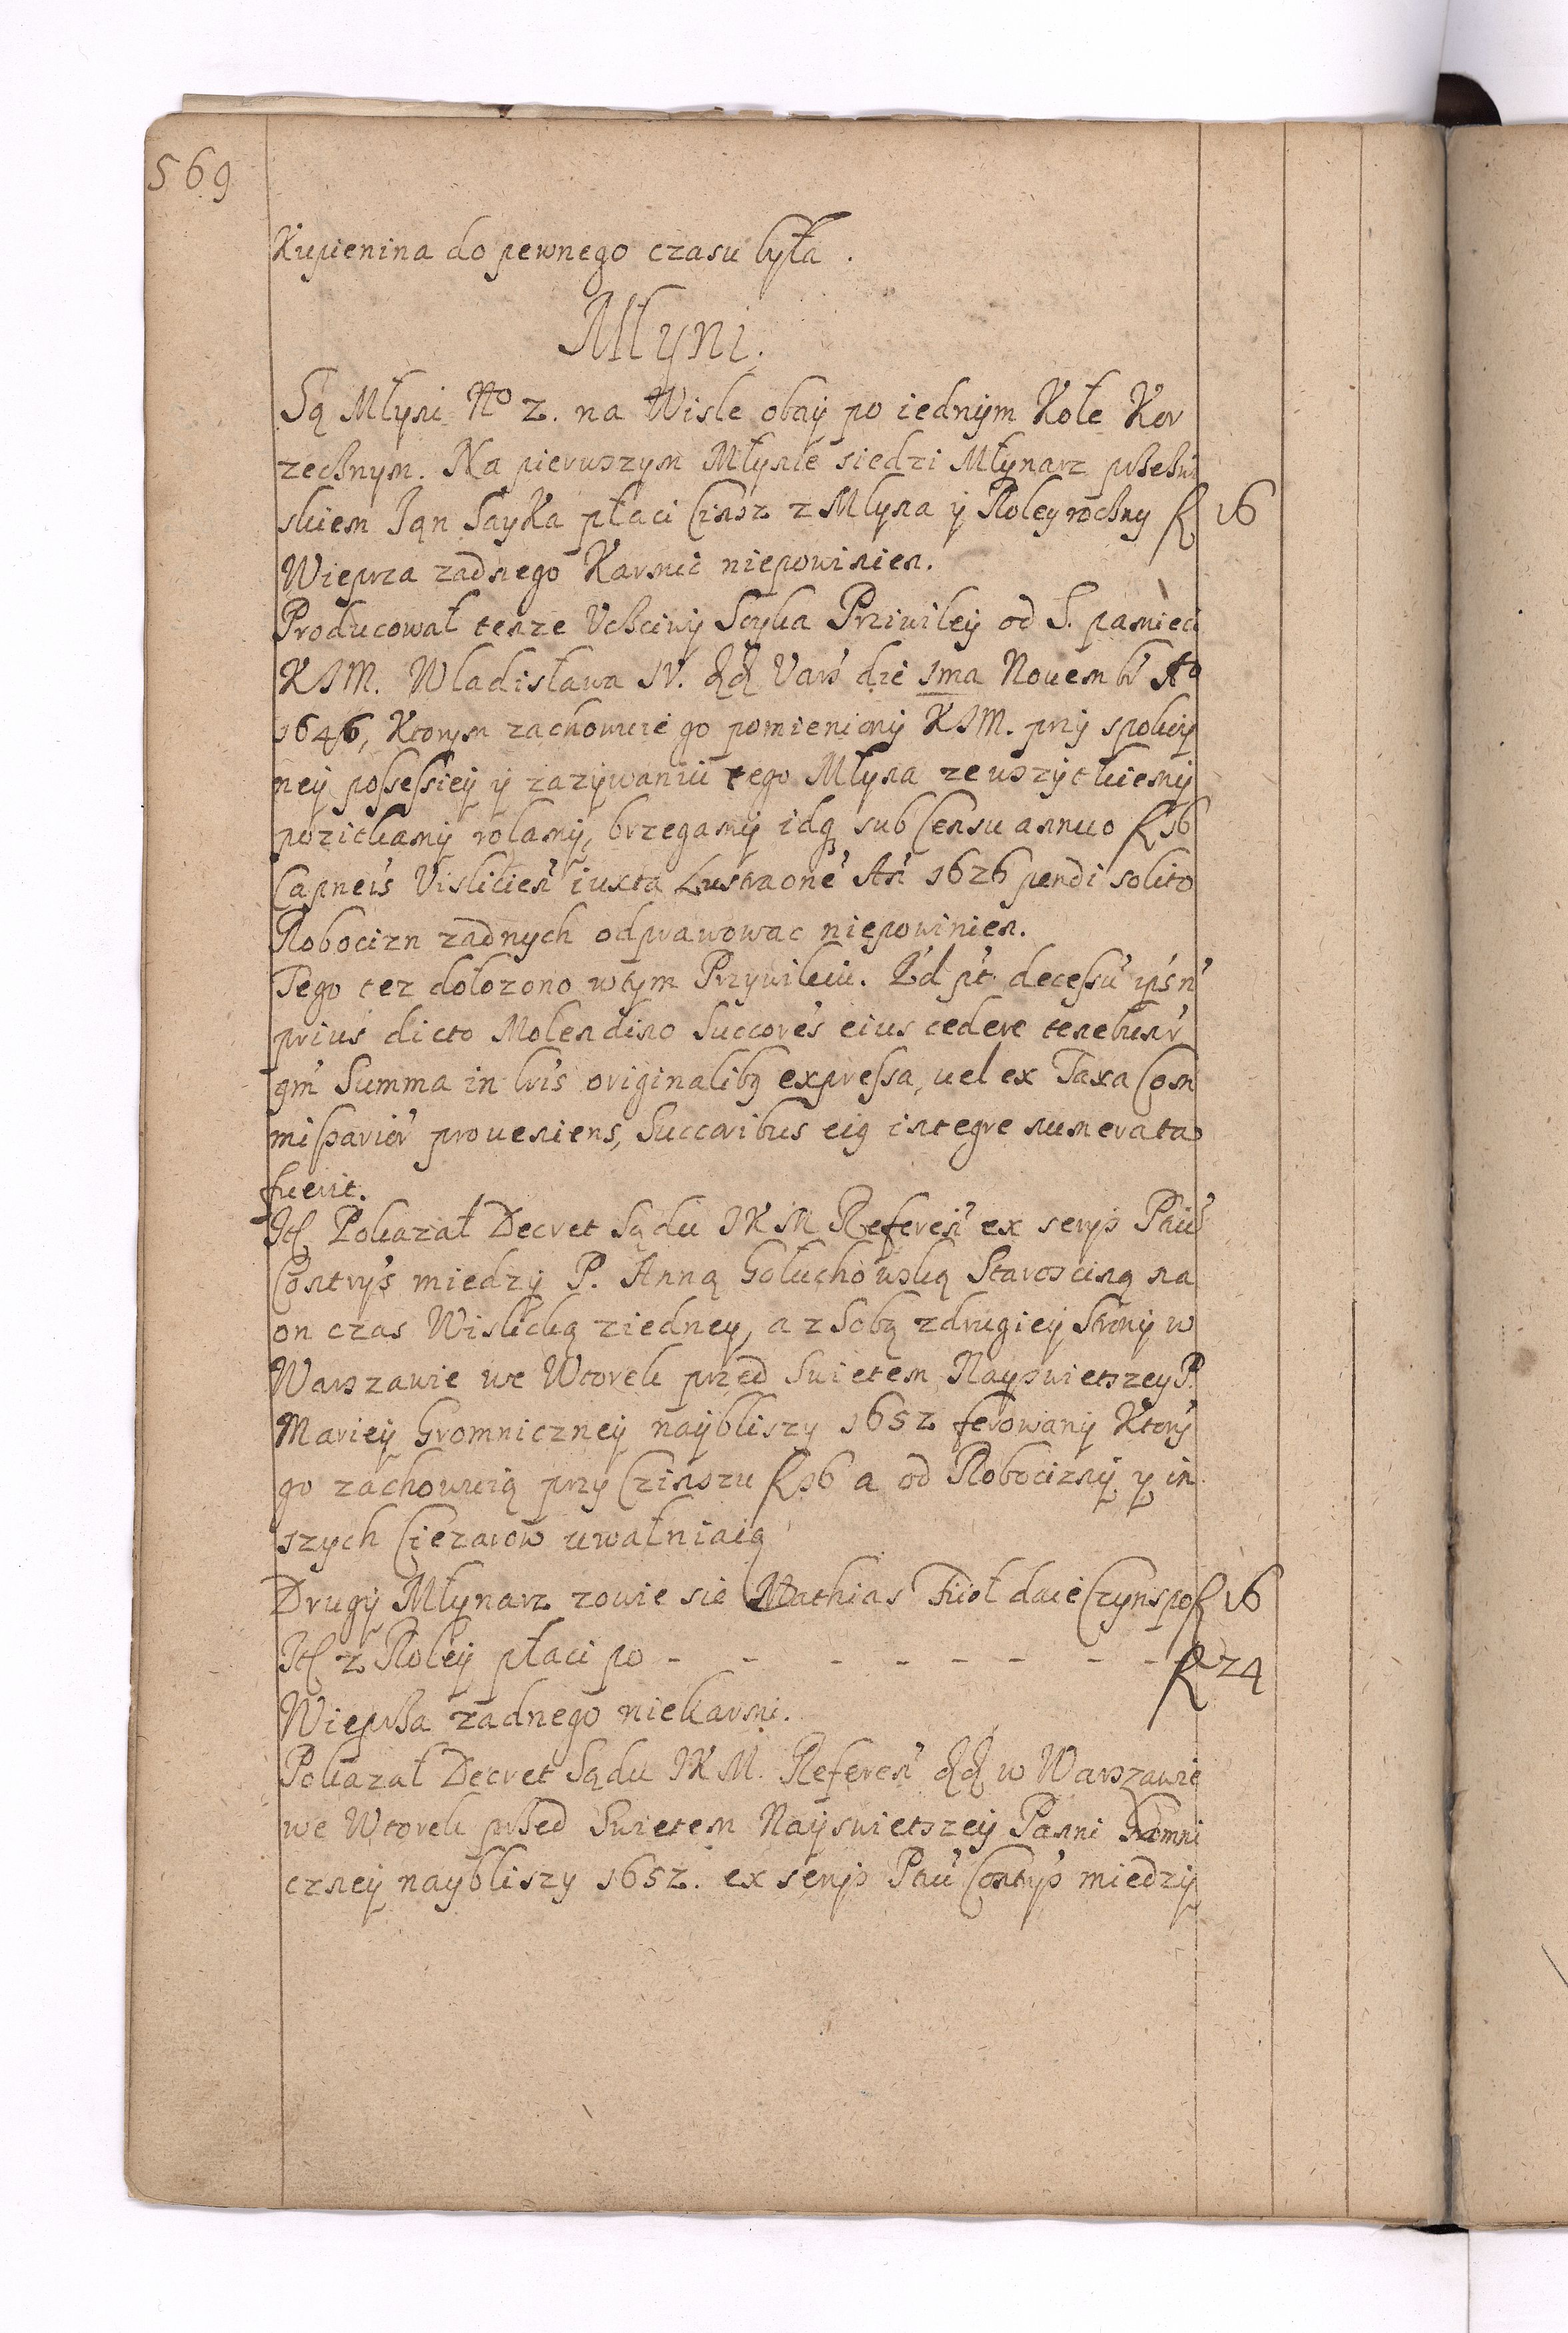 569
Kupienina do pewnego czasu była.
Młyni.
Są Młyni No 2. na Wisle obay po iednym Kole Kor
zecznym. Na pierwszym Młynie siedzi Młynarz
skiem Ian Sayka płaci Czinsz z Młyna y Roley roczny f 16
Wieprza zadnego Karmic niepowinien.
Producował tenze Uczciwy Sayka Priwiley od S. pamieci
KIM. Wladisława IV. dd Vars die 1ma Novembr Ao
1646, Ktorym zachowuie go pomieniony KIM. przy spokoy
ney possessiey y zazywaniu tego Młyna ze wszytkiemy
pozitkamy rolamy, brzegamy idq sub Censu annuo f 16
Capneis Vislicien iuxta Lustraone An 1626 pendi solito
Robocizn zadnych odprawowac niepowinien.
Tego tez dolozono wtym Przywileiu. Qd pt decessu ipsn
prius dicto Molendino Succores eius cedere tenebunr
qm Summa in Lris originalibq expressa, vel ex Taxa Com
missarior proveniens, Succoribus eiq integre numerata
fuerit.
Itt Pokazał Decret Sądu IKM Referen ex serys
Contrys miedzy P. Anną Gołuchowską Staroscing na
on czas Wislicką ziedney, a z Sobą zdrugiey Strony w
Warszawie we Wtorek przed Swietem Nayswietszey P.
Mariey Gromniczney naybliszy 1652 ferowany Ktory
go zachowuią przy Czinszu f 16 a od Robocizny y in
szych Ciezarow uwalniaią
Drugy Młynarz zowie sie Mathias Fiioł daie Czynspo f 16
Itt z Roley płaci po - - - - - - - - f 24
Wieprza zadnego niekarmi.
Pokazał Decret Sądu IKM. Referen dd w Warszawie
we Wtorek przed Swietem Nayswietszey Panni Gromni
czney naybliszy 1652. ex serys Contrys miedzy